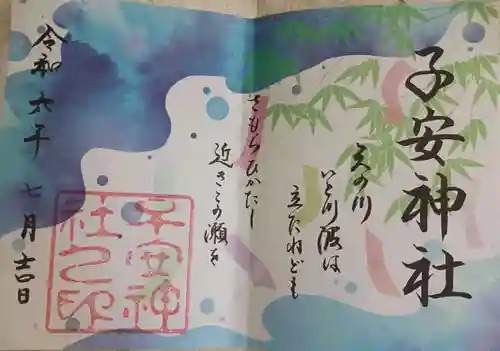 子安神社
天の川
いと川浪は
立たねども
さもらひかたし
近きこの瀬を
令和六年七月吉日
子安神
社之印